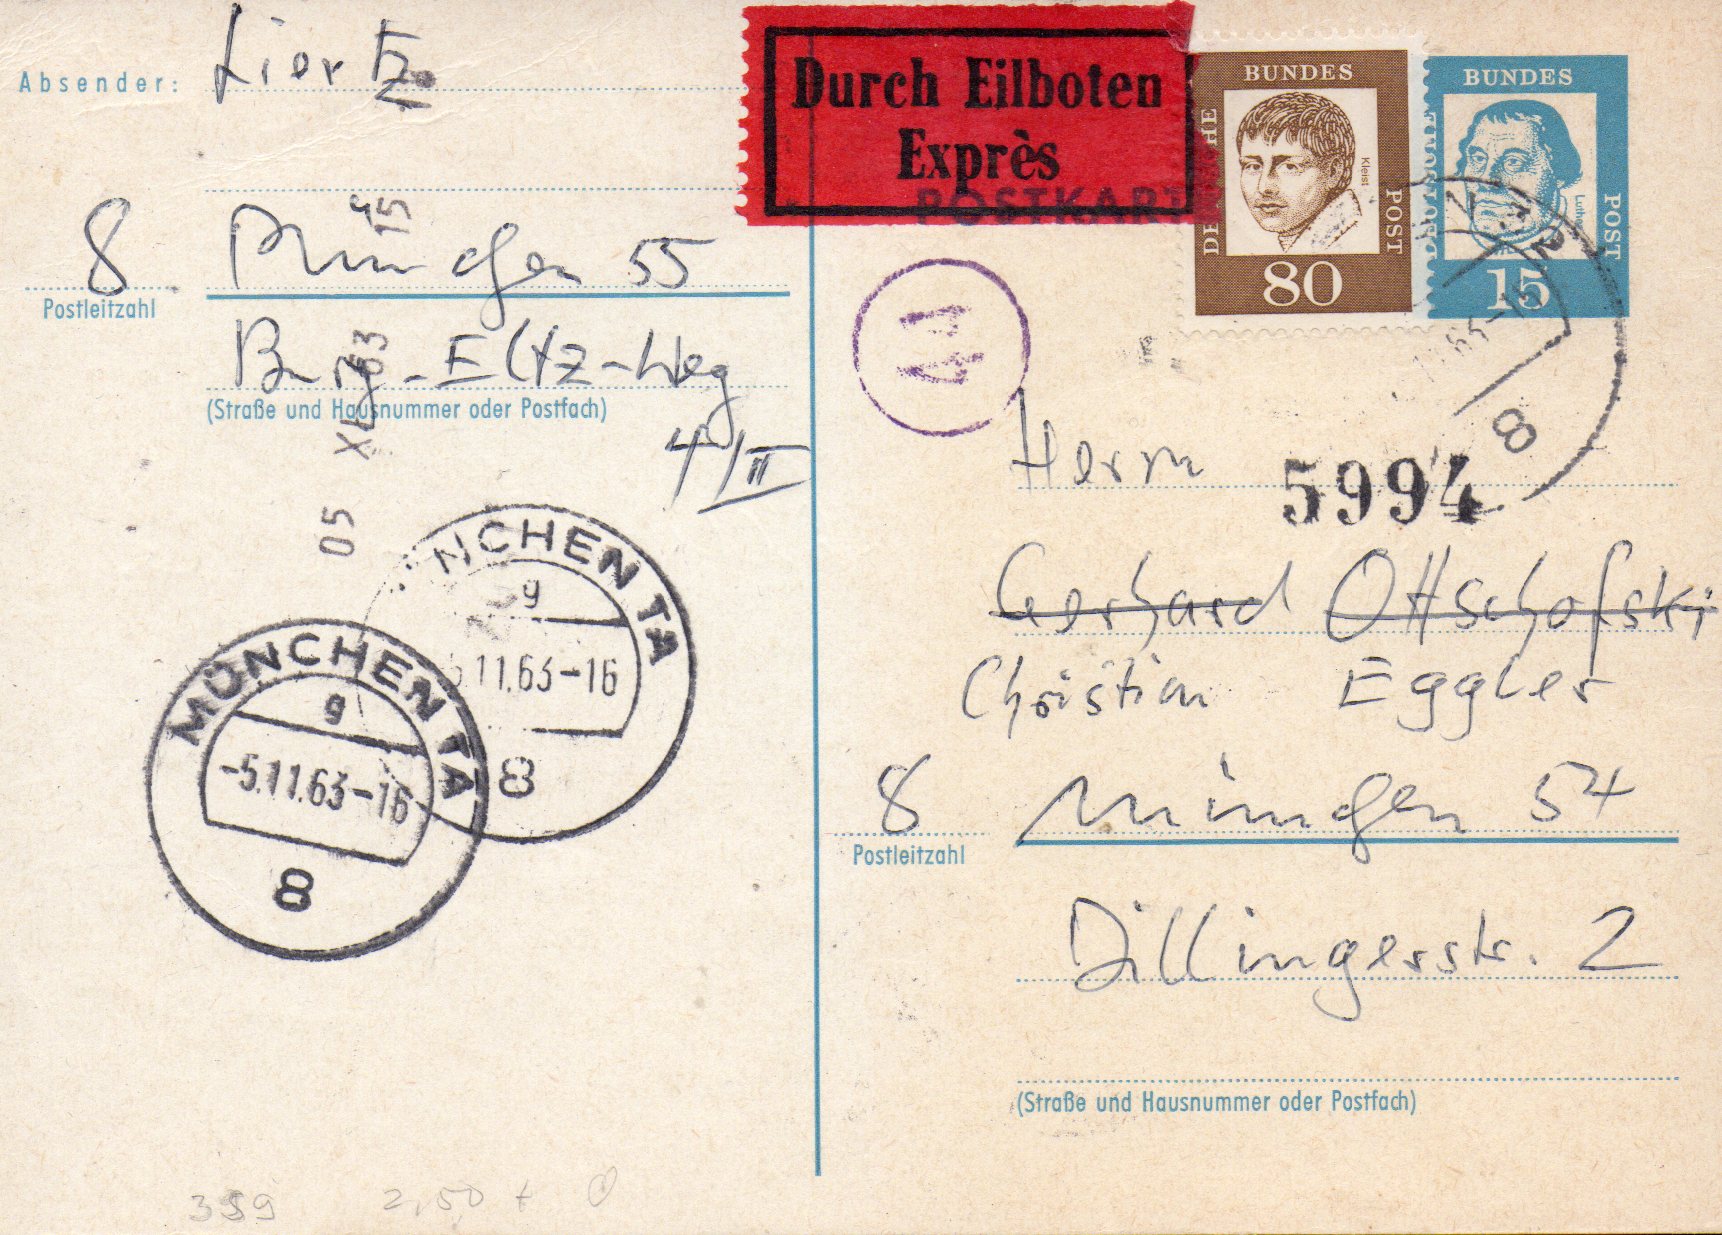 Absender: Liertz
8 München 55
Postleitzahl
Burg-Eltz-Weg
(Straße und Hausnummer oder Postfach)
4/II
05 XI 63 15
MÜNCHEN TA
g
-5.11.63-16
8
NCHEN TA
g
5.11.63-16
8
359 2,50 +
Durch Eilboten
Exprès
POSTKART
BUNDES
POST
Kleist
80
BUNDES
DEUTSCHE
POST
Luther
15
44
8
Herrn
5994
Gerhard Ottschofski
Christian Eggler
8 München 54
Postleitzahl
Dillingerstr. 2
(Straße und Hausnummer oder Postfach)